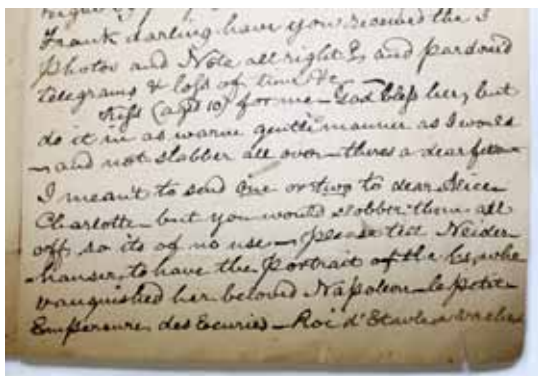 Frank darling have you received the 3
Photos and Note all right & and pardoned
telegrams & loss of time &c
Kiss (aged 10) for me – God bless her, but
do it in as warm gentle manner as I would
– and not slabber all over – theres a dear
I meant to send one or two to dear Alice
Charlotte – but you would slobber them all
off so its of no use – please tell Neider-
hauser, to have the Portrait of the who
vanquished her beloved Napoleon – le petit
Empereur des Ecuries – Roi d'Etable